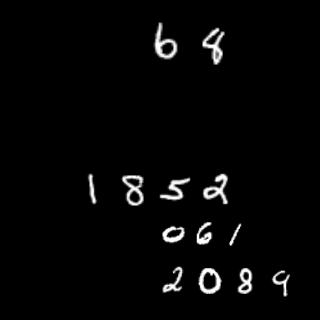 68
1852
061
2089